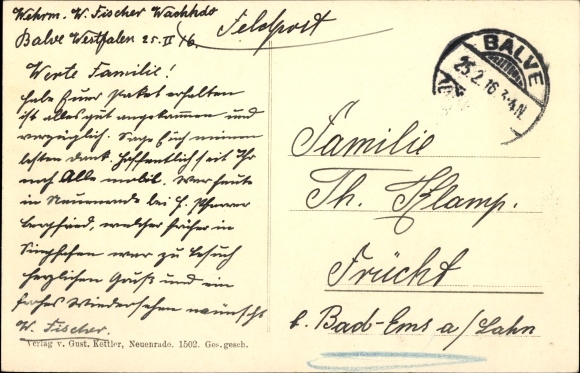 Wehrm. W. Fischer Wachkdo
Balve Westfalen 25. II 16.
Feldpost
BALVE
25.2.16.3-4.N.
Werte Familie!
habe Euer Paket erhalten
ist alles gut angekommen und
vorzüglich. Sage Euch meinen
besten dank. Hoffentlich seit Ihr
noch Alle mobil. War heute
in Neuenrade bei H. Pfarrer
welcher früher in
war zu besuch
herzlichen Gruß und ein
frohes Wiedersehen wünscht
W. Fischer.
Familie
Th. Klamp.
Frücht
b. Bad-Ems a/Lahn
Verlag v. Gust. Kettler, Neuenrade. 1502. Ges. gesch.